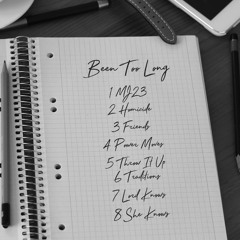 Been Too Long
1 MJ23
2 Homicide
3 Friends
4 Power Moves
5 Throw It Up
6 Traditions
7 Lord Knows
8 She Knows